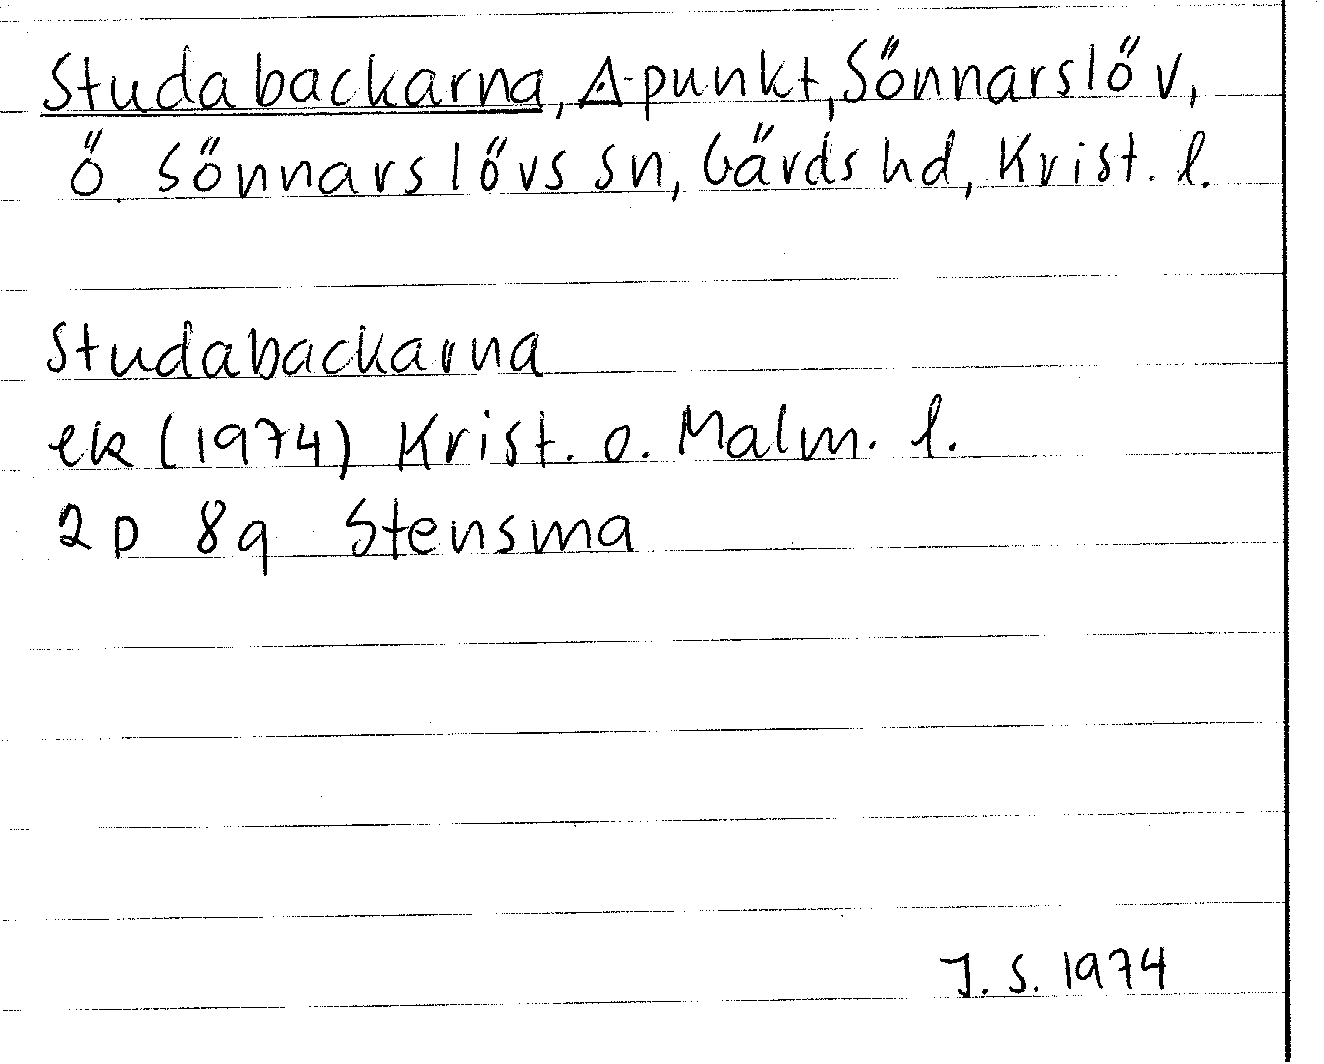 Studabackarna, A-punkt, Sönnarslöv,
Ö. Sönnarslövs sn, Gärds hd, Krist. l.
Studabackarna
ek (1974) Krist. o. Malm. l.
2D 8q Stensma
J. S. 1974